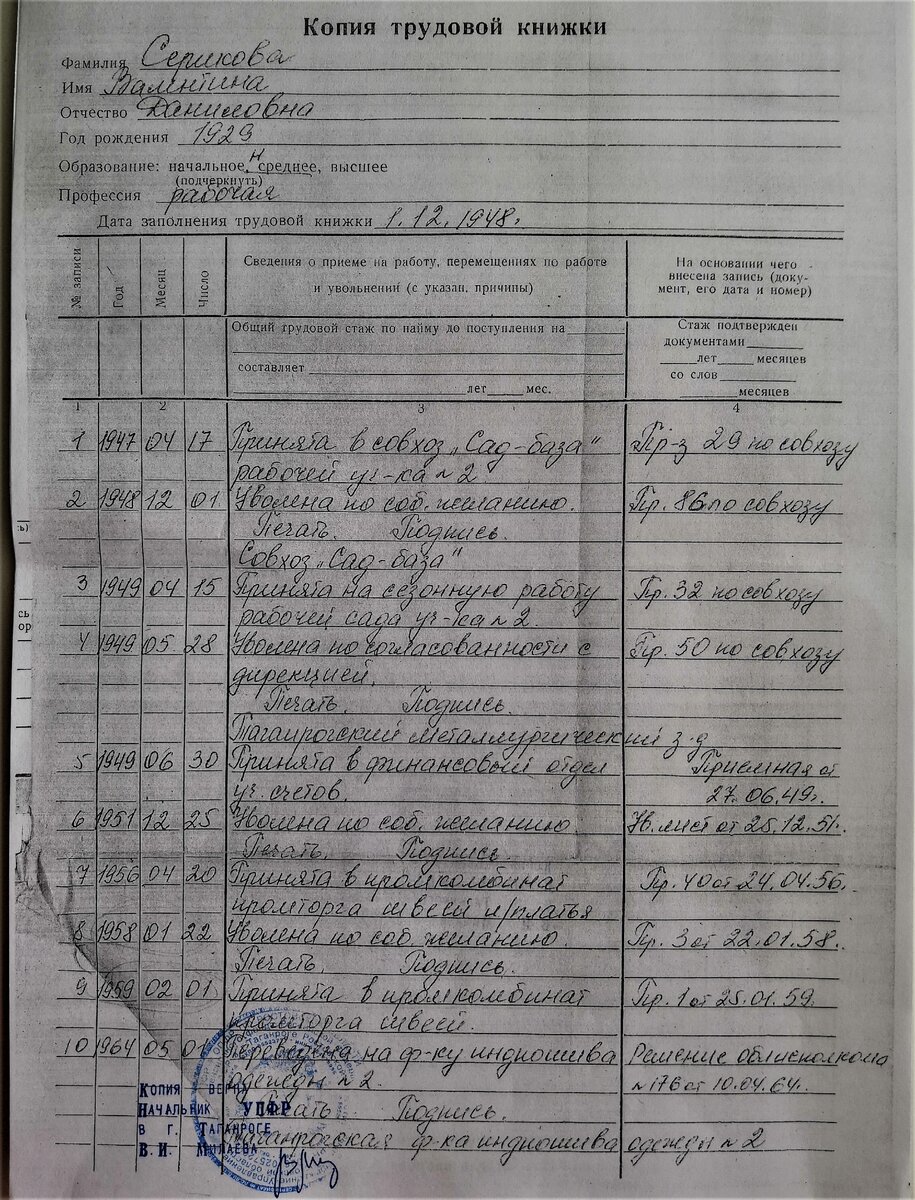 Копия трудовой книжки
Фамилия Серикова
Имя Валентина
Отчество Даниловна
Год рождения 1929
Образование: начальное, н среднее, высшее
(подчеркнуть)
Профессия рабочая
Дата заполнения трудовой книжки 1.12.1948г.
№ записи Год Месяц Число Сведения о приеме на работу, перемещениях по работе и увольнений (с указан. причины) На основании чего внесена запись (документ, его дата и номер)
Общий трудовой стаж по найму до поступления на
составляет
лет мес.
Стаж подтвержден
документами
лет месяцев
со слов
месяцев
1 2 3 4
1 1947 04 17 Принята в совхоз „Сад-база" Пр-з 29 по совхозу
рабочей уч-ка №2
2 1948 12 01 Уволена по соб. желанию. Пр. 86 по совхозу
Печать. Подпись.
Совхоз „Сад-база"
3 1949 04 15 Принята на сезонную работу Пр. 32 по совхозу
рабочей сада уч-ка №2.
4 1949 05 28 Уволена по согласованности с Пр. 50 по совхозу
дирекцией.
Печать. Подпись.
Таганрогский металлургический з-д
5 1949 06 30 Принята в финансовый отдел Приемная от
уч. счетов. 27.06.49г.
6 1951 12 25 Уволена по соб. желанию. Ув. лист от 25.12.51.
Печать. Подпись.
7 1956 04 20 Принята в промкомбинат Пр. 40 от 24.04.56.
промторга швеей л/платья
8 1958 01 22 Уволена по соб. желанию. Пр. 3 от 22.01.58.
Печать. Подпись.
9 1959 02 01 Принята в промкомбинат Пр. 1 от 25.01.59.
промторга швеей.
10 1964 05 01 Переведена на ф-ку индпошива Решение облисполкома
одежды №2. №176 от 10.04.64.
Печать Подпись.
Таганрогская ф-ка индпошива одежды №2
Копия верна
Начальник УПФР
в г. Таганроге
В.И. Милаева